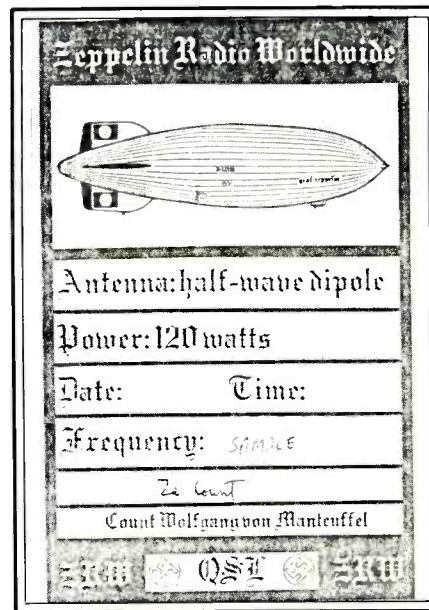 Zeppelin Radio Worldwide
graf zeppelin
Antenna: half-wave dipole
Power: 120 watts
Date: Time:
Frequency: SAMPLE
Ze Count
Count Wolfgang von Manteuffel
ZRW QSL ZRW